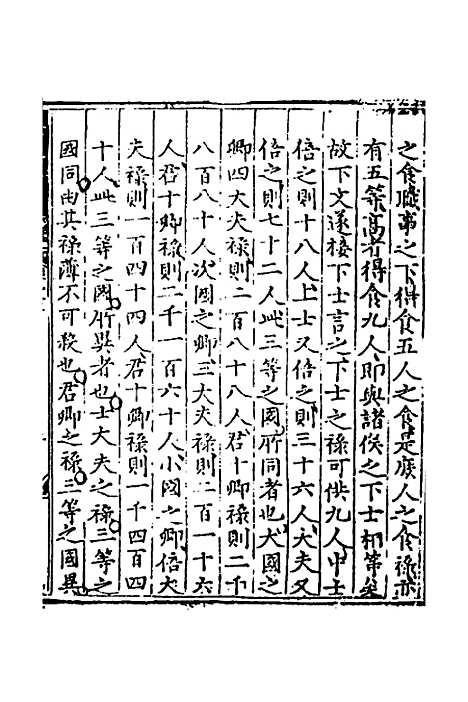 之食職事之下得食五人之食是庻人之食祿亦
有五等高者得食九人即與諸侯之下士相等矣
故下文遂接下士言之下士之祿可供九人中士
倍之則十八人上士又倍之則三十六人大夫又
倍之則七十二人此三等之國所同者也大國之
卿四大夫祿則二百八十八人君十卿祿則二千
八百八十人次國之卿三大夫祿則二百一十六
人君十卿祿則二千一百六十人小國之卿倍大
夫祿則一百四十四人君十卿祿則一千四百四
十人此三等之國所異者也士大夫之祿三等之
國同由其祿薄不可殺也君卿之祿三等之國異